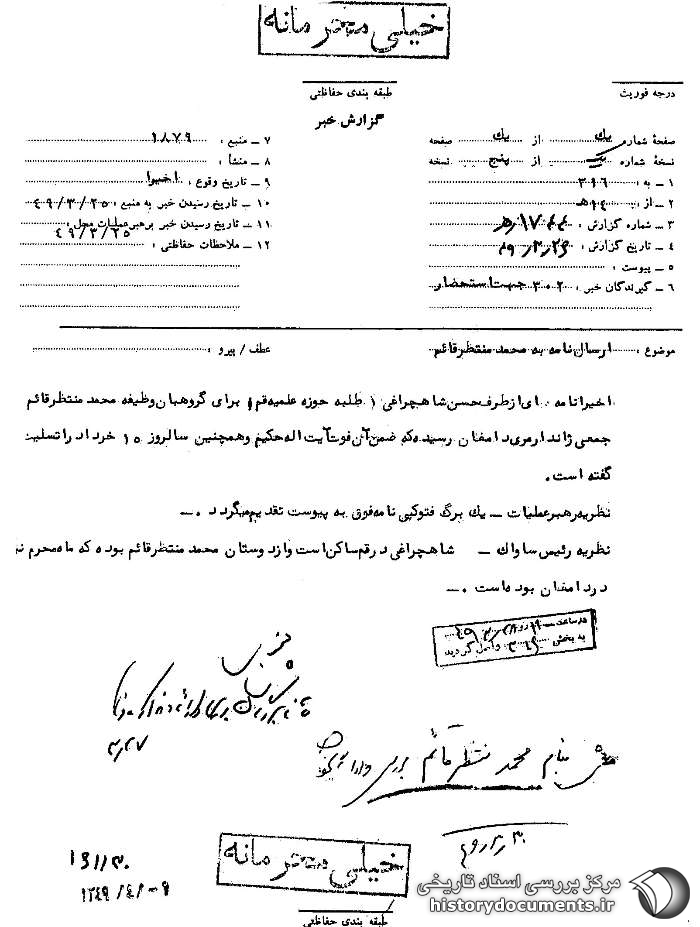 خیلی محرمانه
درجه فوریت
طبقه بندی حفاظتی
گزارش خبر
صفحهٔ شماره یک از یک صفحه
نسخهٔ شماره یک از پنج نسخه
۱ – به : ۳۱۶
۲ – از : ۱۴ه
۳ – شماره گزارش :
۴ – تاریخ گزارش :
۵ – پیوست :
۶ – گیرندگان خبر : ۳۰۲ جهت استحضار
۷ – منبع : ۱۸۷۹
۸ – منشأ :
۹ – تاریخ وقوع : اخیرا
۱۰ – تاریخ رسیدن خبر به منبع : ۴۹/۳/۲۵
۱۱ – تاریخ رسیدن خبر برهبر عملیات محل : ۴۹/۳/۲۵
۱۲ – ملاحظات حفاظتی :
موضوع : ارسال نامه به محمد منتظرقائم
عطف / پیرو :
اخیرا نامه ای از طرف حسن شاهچراغی ( طلبه حوزه علمیه قم ) برای گروهبان وظیفه محمد منتظرقائم
جمعی ژاندارمری دامغان رسیده که ضمن آن فوت آیت اله حکیم و همچنین سالروز ۱۵ خرداد را تسلیت
گفته است .
نظریه رهبر عملیات – یک برگ فتوکپی نامه فوق به پیوست تقدیم میگردد . –
نظریه رئیس ساواک – شاهچراغی در قم ساکن است و از دوستان محمد منتظرقائم بوده که ماه محرم نیز
در دامغان بوده است . –
در ساعت
به بخش ۳۱۶ واصل گردید
۳/۲۷
بنام محمد منتظرقائم
خیلی محرمانه
۱۳۴۹/۴/۰۹
طبقه بندی حفاظتی
مرکز بررسی اسناد تاریخی
historydocuments.ir